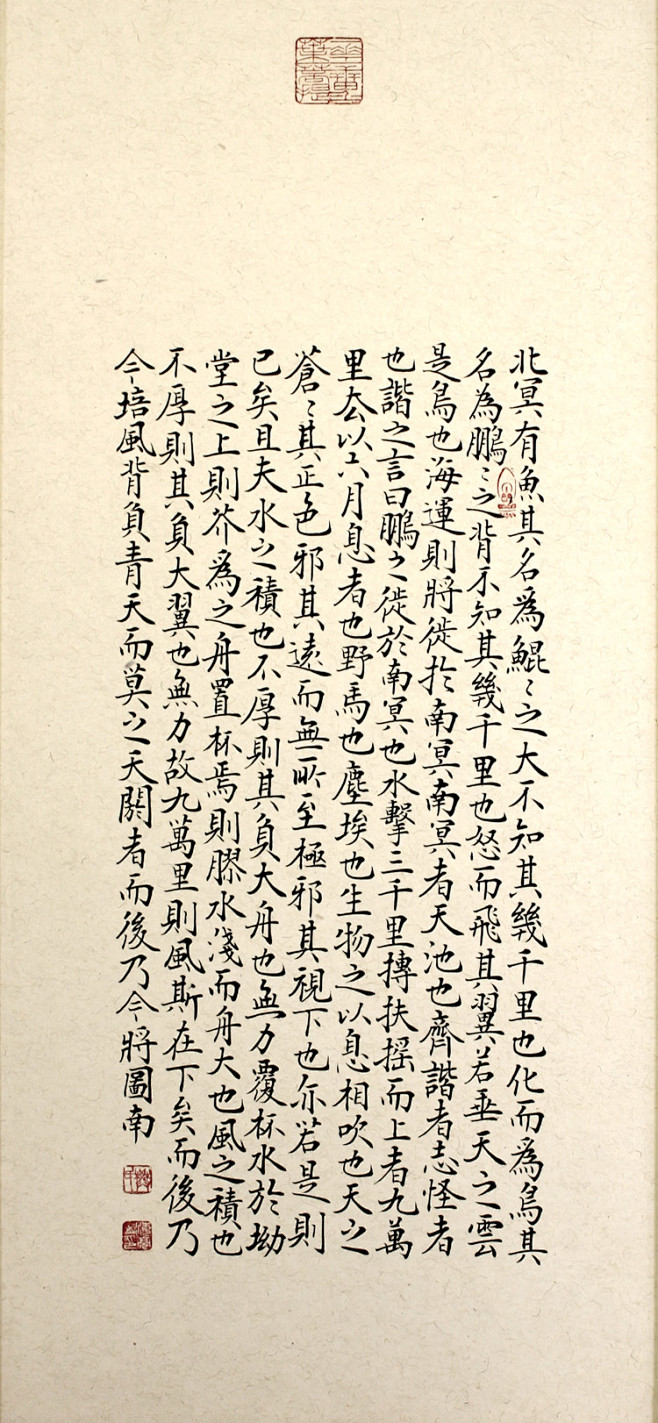 北冥有魚其名為鯤〻之大不知其幾千里也化而為鳥其
名為鵬〻之背不知其幾千里也怒而飛其翼若垂天之雲
是鳥也海運則將徙於南冥南冥者天池也齊諧者志怪者
也諧之言曰鵬之徙於南冥也水擊三千里摶扶搖而上者九萬
里去以六月息者也野馬也塵埃也生物之以息相吹也天之
蒼〻其正色邪其遠而無所至極邪其視下也亦若是則
已矣且夫水之積也不厚則其負大舟也無力覆杯水於坳
堂之上則芥為之舟置杯焉則膠水淺而舟大也風之積也
不厚則其負大翼也無力故九萬里則風斯在下矣而後乃
今培風背負青天而莫之夭閼者而後乃今將圖南